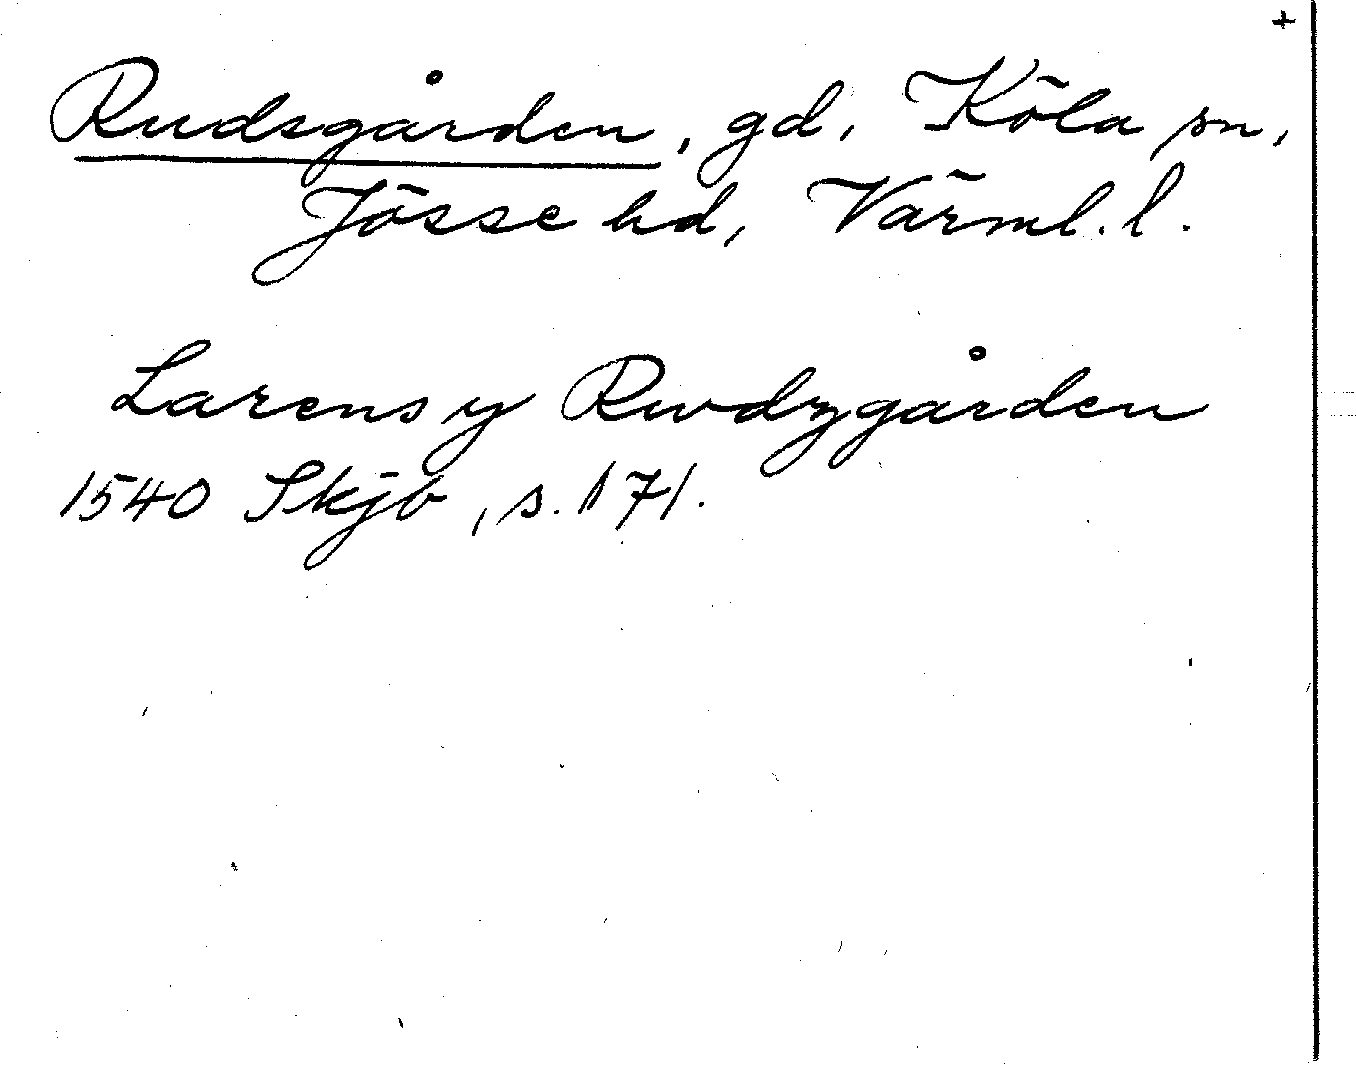 +
Rudsgården, gd, Köla sn,
Jösse hd, Värml. l.
Larens y Rwdzgården
1540 Skjb, s. 171.